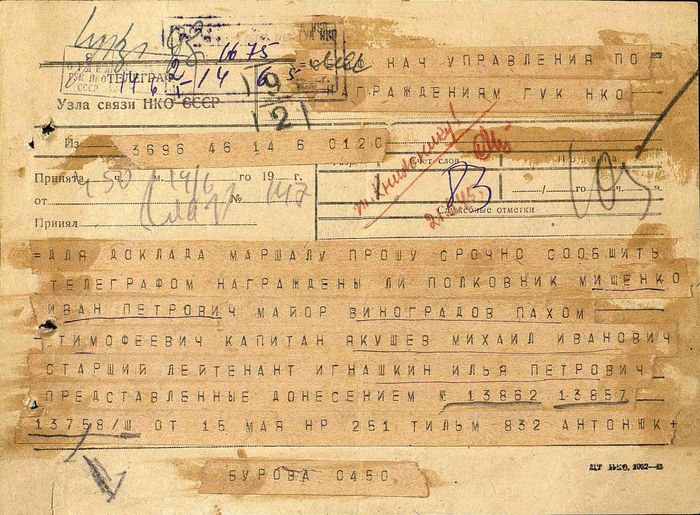 1675
НАЧ УПРАВЛЕНИЯ ПО
НАГРАЖДЕНИЯМ ГУК НКО
ТЕЛЕГРАФ
14 6
Узла связи НКО СССР
9
12
Из 3696 46 14 6 0120
т. Книжнику!
Счет слов
Подача
Принята 450 ч. м. 14/6 19 г.
83
105
от № 147
Принял
Служебные отметки
=ДЛЯ ДОКЛАДА МАРШАЛУ ПРОШУ СРОЧНО СООБЩИТЬ
ТЕЛЕГРАФОМ НАГРАЖДЕНЫ ЛИ ПОЛКОВНИК МИЩЕНКО
ИВАН ПЕТРОВИЧ МАЙОР ВИНОГРАДОВ ПАХОМ
ТИМОФЕЕВИЧ КАПИТАН ЯКУШЕВ МИХАИЛ ИВАНОВИЧ
СТАРШИЙ ЛЕЙТЕНАНТ ИГНАШКИН ИЛЬЯ ПЕТРОВИЧ
ПРЕДСТАВЛЕННЫЕ ДОНЕСЕНИЕМ № 13862 13857
13758/Ш ОТ 15 МАЯ НР 251 ТИЛЬМ 832 АНТОНЮК+
БУРОВА 0450